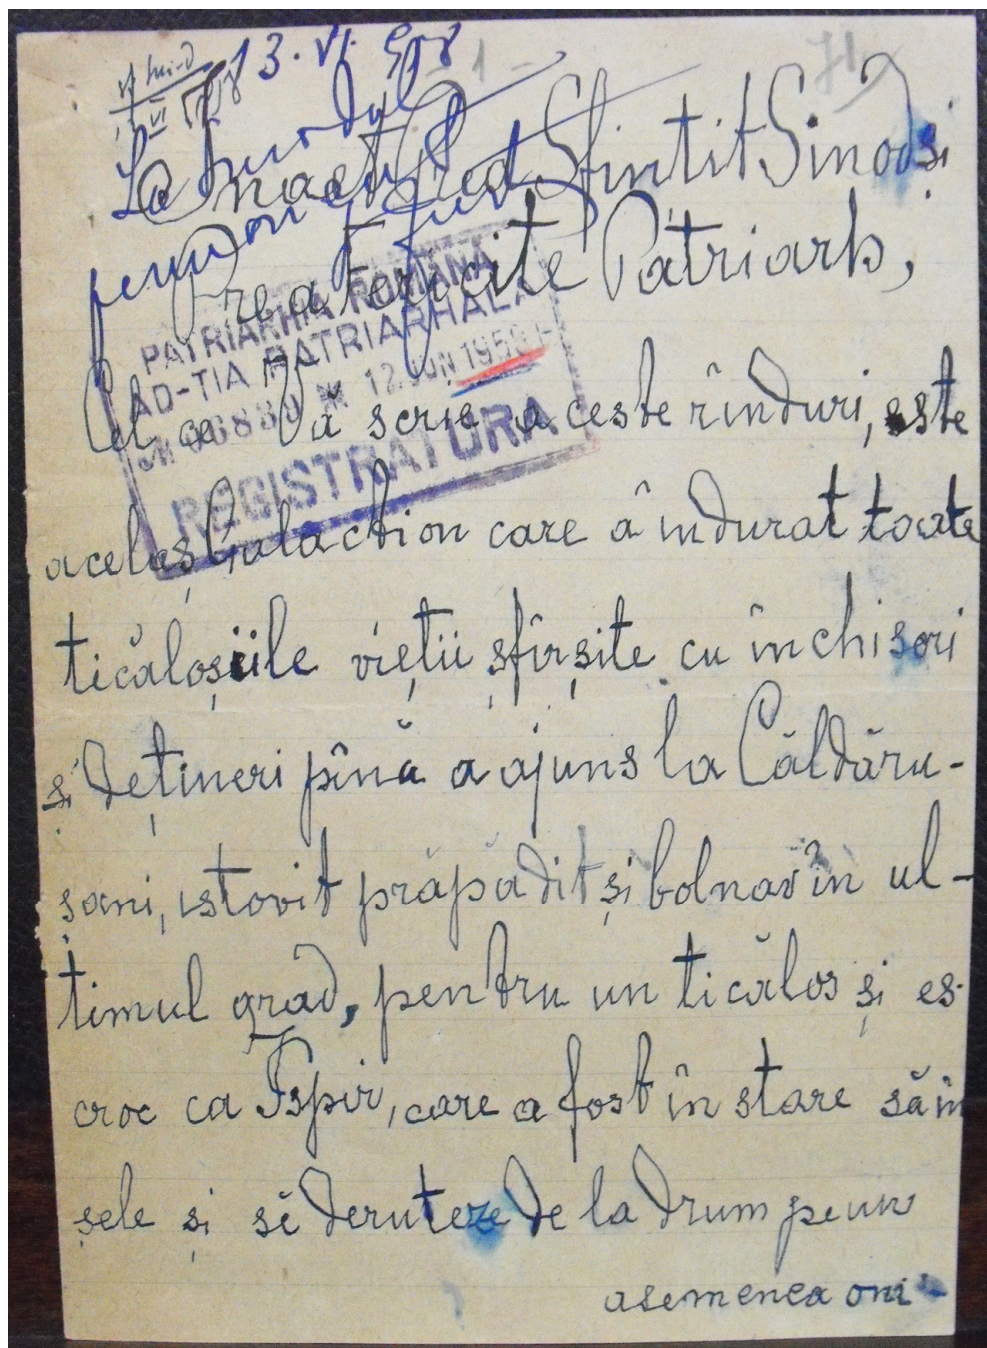 13. VI. 958
- 1 -
La
Inact Pred Sfintit Sinod si
Prea fericite Patriarh,
PATRIARHIA ROMÂNĂ
AD-TIA PATRIARHALĂ
12. JUN 1958
REGISTRATURA
Cel ce Vă scrie aceste rînduri, este
acelaș Galaction care â îndurat toate
ticăloșiile vieții sfîrșite cu închisori
și dețineri pînă a ajuns la Căldăru-
șani, istovit prăpădit și bolnav în ul-
timul grad, pentru un ticălos și es-
croc ca Ispir, care a fost în stare să în
șele și sĕ deruteze de la drum pe un
asemenea omi-